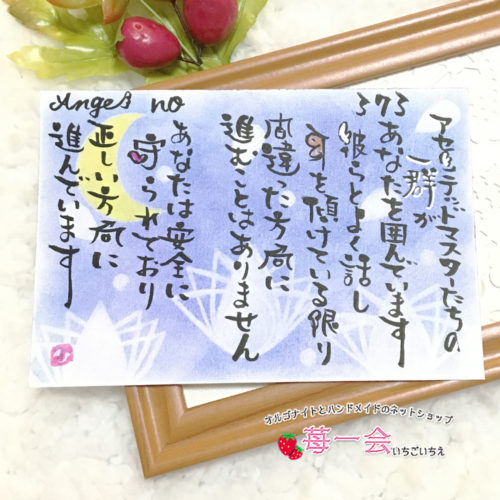 Angel no
373
アセンテッドマスターたちの
一群が
あなたを囲んでいます
彼らとよく話し
耳を傾けている限り
間違った方向に
進むことはありません
あなたは安全に
守られており
正しい方向に
進んでいます
オルゴナイトとハンドメイドのネットショップ
苺一会
いちごいちえ